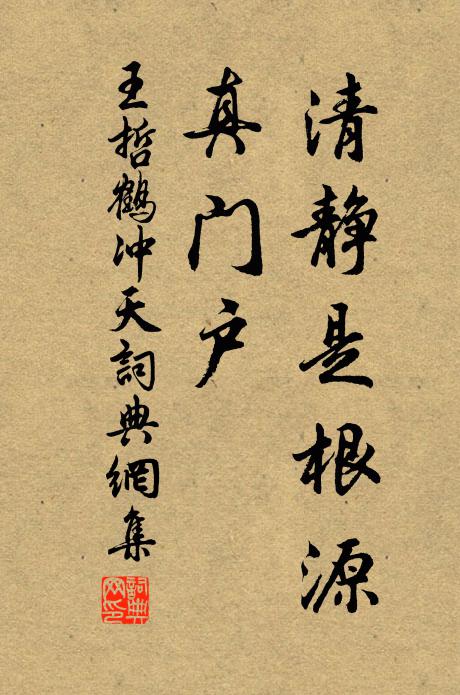 清静是根源
真门户
王哲鹤冲天詞典網集
詞典网印